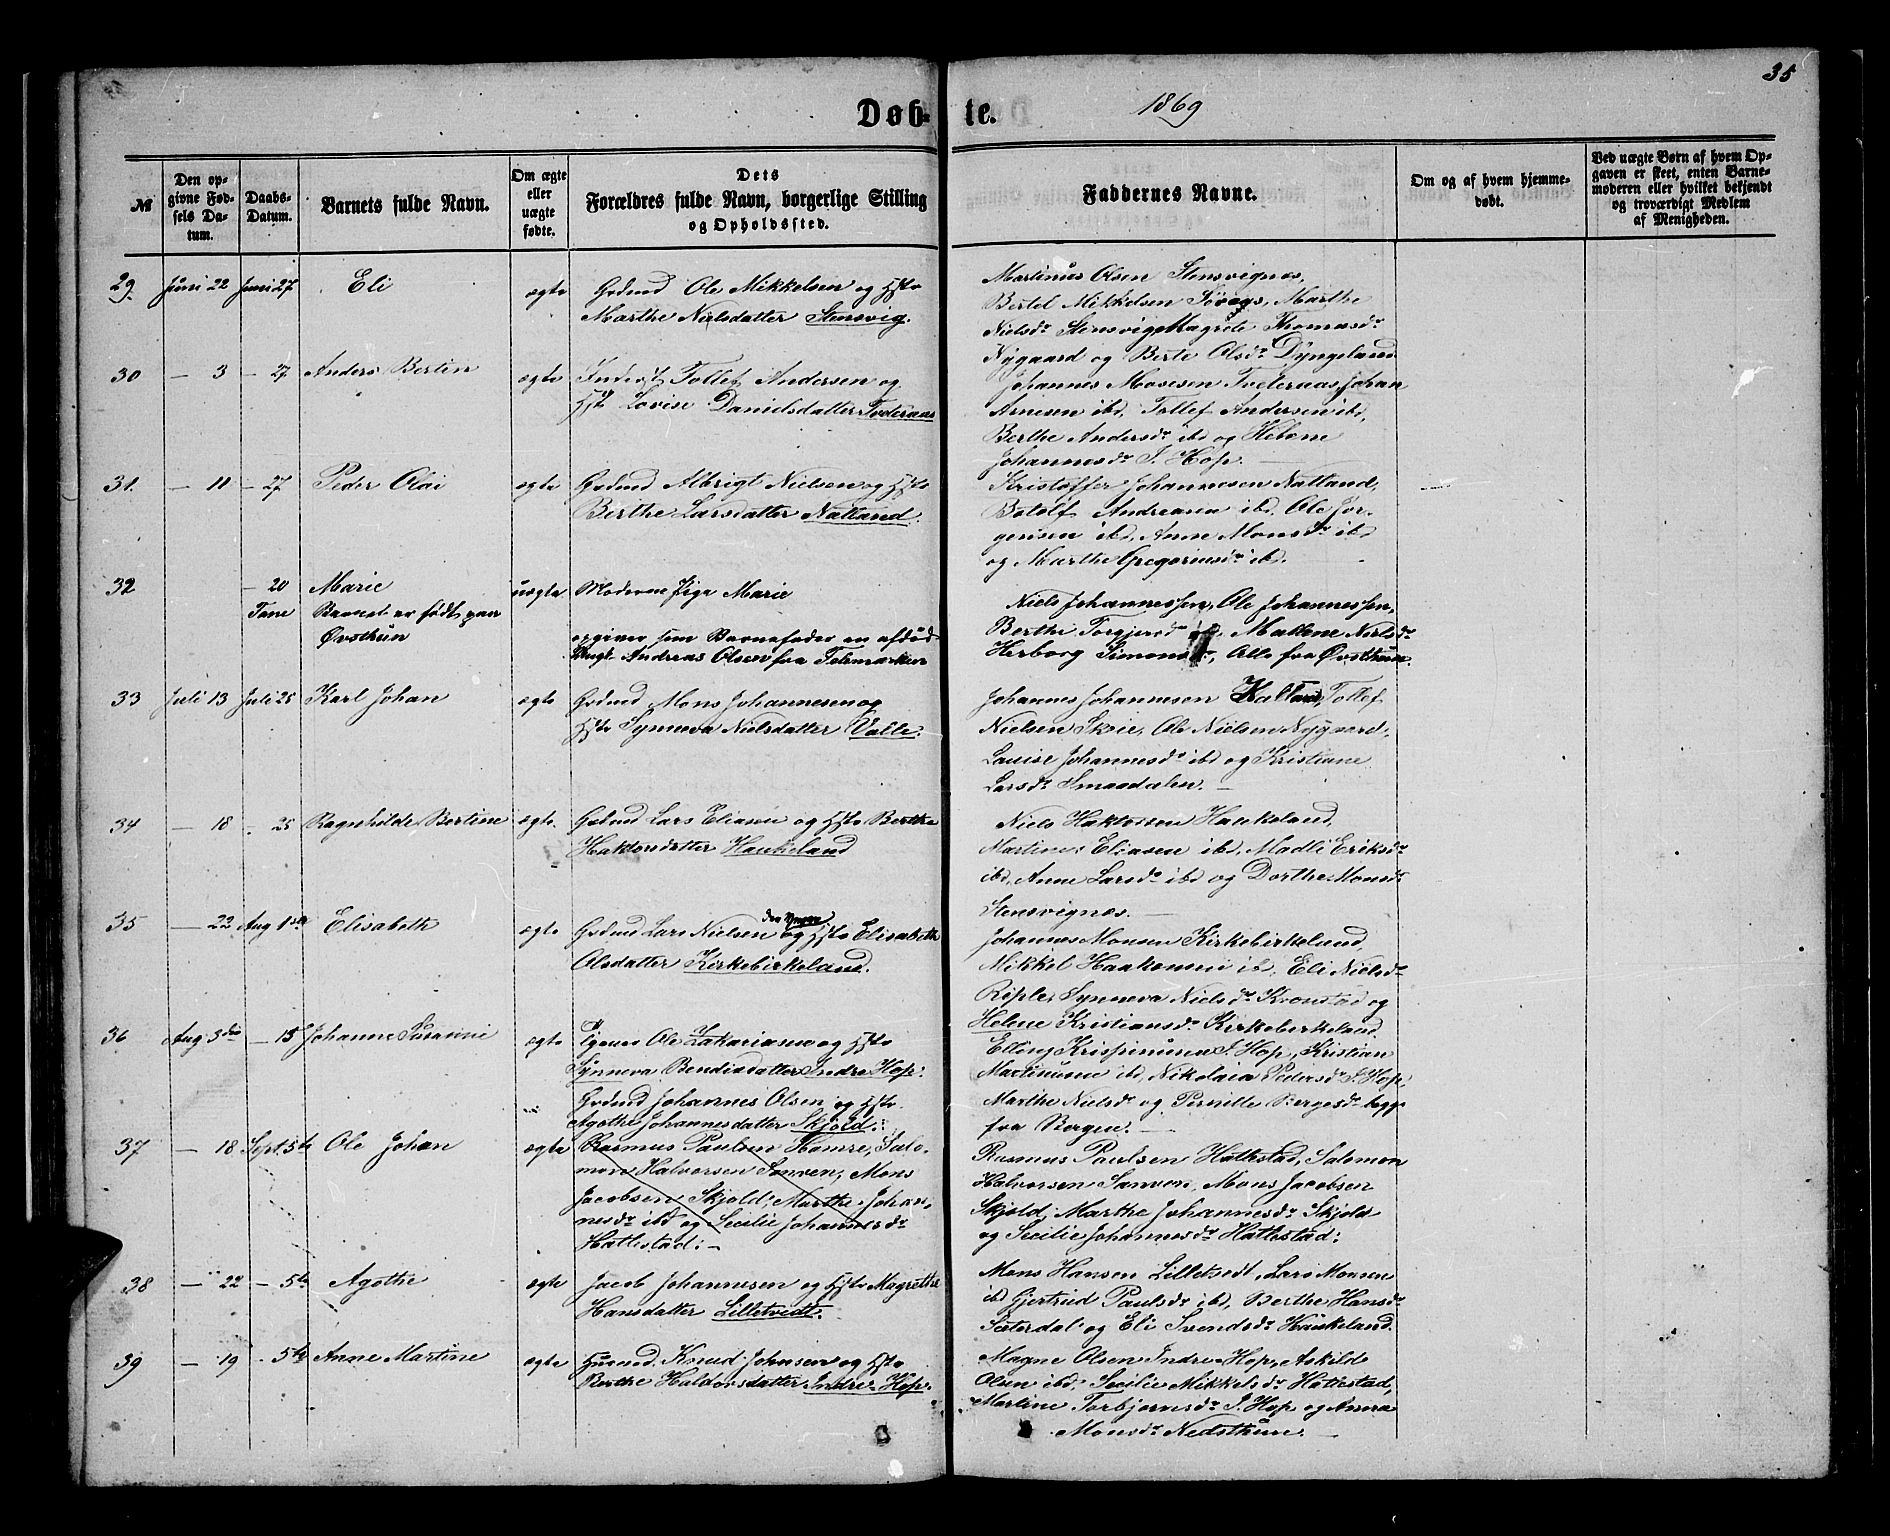 35
Døb- te. 1869
№
Den op-
givne Fød-
sels Da-
tum.
Daabs-
Datum.
Barnets fulde Navn.
Om ægte
eller
uægte
fødte.
Dets
Forældres fulde Navn, borgerlige Stilling
og Opholdssted.
Faddernes Navne.
Om og af hvem hjemme-
døbt.
Ved uægte Børn af hvem Op-
gaven er skeet, enten Barne-
moderen eller hvilket bekjendt
og troværdigt Medlem
af Menigheden.
29 Juni 22 Juni 27 Eli ægte Grdmd Ole Mikkelsen og Hstr
Marthe Nielsdatter Stensvig.
Martinus Olsen Stensvignes,
Bertel Mikkelsen Søvags, Marthe
Nielsdr Stensvig Magrete Thomasdr
Nygaard og Berte Olsdr Dyngeland
30 — 3 — 27 Anders Bertin ægte Inderst Tollef Andersen og
Hst Lovise Danielsdatter Tveteraas
Johannes Mosesen Tveteraas Johan
Arnesen ibd, Tollef Andersen ibd,
Berthe Andersdr ibd og Helene
Johannesdr I. Hop. —
31. — 11 — 27 Peder Olai ægte Grdmd Albrigt Nielsen og Hstr
Berthe Larsdatter Natland.
Kristoffer Johannesen Natland,
Botolf Andreasen ibd, Ole Jør-
gensen ibd, Anne Monsdr ibd
og Marthe Gregoriusdr ibd.
32 — 20 Marie uægte Moderen Pige Marie
Tone Barnet er født paa
Øvsthun
opgiver som Barnefader en afdød
Ungk. Andreas Olsen fra Telemarken
Niels Johannessen, Ole Johannessen,
Berthe Torgjersdr ibd, Mallene Nielsdr
Herborg Simonsdr, Alle fra Øvsthun.
33 Juli 13 Juli 25 Karl Johan ægte Grdmd Mons Johannesen og
Hstr Synneva Nielsdatter Valle.
Johannes Johannesen Kalland, Tollef
Nielsen Skeie, Ole Nielsen Nygaard,
Louise Johannesdr ibd og Kristiane
Larsdr Smaadalen. —
34 — 18 — 25 Ragnhilde Bertine ægte. Grdmd Lars Eliasen og Hstr Berthe
Haktorsdatter Haukeland
Niels Haktorsen Haukeland,
Martinus Eliasen ibd, Madli Eriksdr
ibd, Anne Larsdr ibd og Dorthe Monsdr
Stensvignes. —
35 — 22 Aug 1ste Elisabeth ægte Grdmd Lars Nielsen den Yngre og Hstr Elisabeth
Olsdatter Kirkebirkeland.
Johannes Monsen Kirkebirkeland,
Mikkel Haakonsen ibd, Eli Nielsdr
Riple, Synneva Nielsdr Kronstad og
Helene Kristiansdr Kirkebirkeland
36 Aug 3die — 15 Johanne Susanne ægte Ole Zakariasen og Hstr
Synneva Bendixdatter Indre Hop.
Elling Krispinusen I. Hop, Kristian
Martinusen ibd, Nikolaia Pedersdr I. Hop,
Marthe Nielsdr og Pernille Bergesdr begge
fra Bergen. —
37 — 18 Sept. 5te Ole Johan ægte Grdmd Johannes Olsen og Hstr
Agothe Johannesdatter Skjold:
Rasmus Paulsen Hamre, Salo-
mon Halvorsen Sanven, Mons
Jacobsen Skjold, Marthe Johan-
nesdr ibd og Secilie Johannesdr
Hattestad: —
Rasmus Paulsen Hattestad, Salomon
Halvorsen Sanven, Mons Jacobsen
Skjold, Marthe Johannesdr Skjold
og Secilie Johannesdr Hattestad:
38 — 22 — 5te Agothe ægte Jacob Johannesen og Hstr Magrethe
Hansdatter Lilletvedt.
Mons Hansen Lilletvedt, Lars Monsen
ibd Gjertrud Paulsdr ibd, Berthe Hansdr
Sæterdal og Eli Svendsdr Haukeland.
39 — 19 — 5te Anne Martine ægte Husmd. Knud Johnsen og Hstr
Berthe Haldorsdatter Indre Hop.
Magne Olsen Indre Hop, Askild
Olsen ibd, Secilie Mikkelsdr Hattestad,
Martine Torbjørnsdr I. Hop og Anna
Monsdr Nedsthun. —